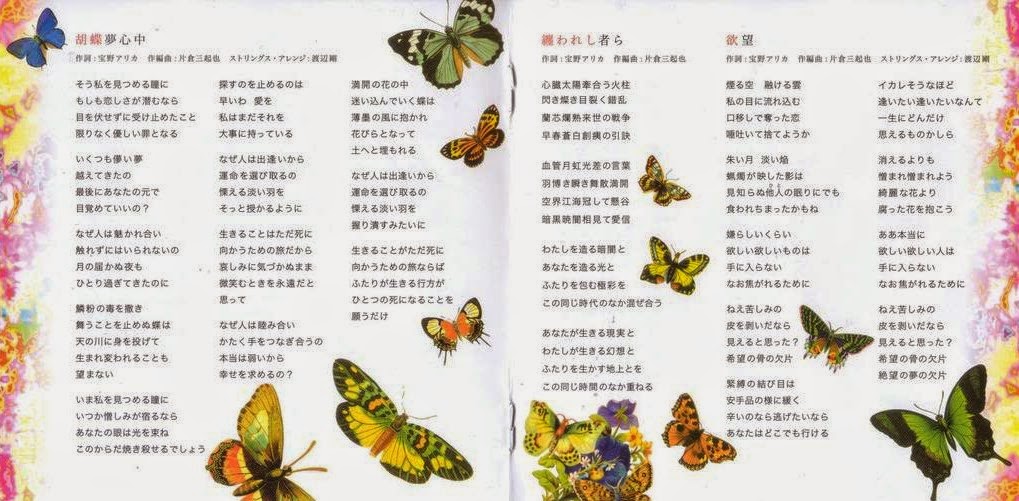 胡蝶夢心中
作詞：宝野アリカ 作編曲：片倉三起也 ストリングス・アレンジ：渡辺剛
そう私を見つめる瞳に
もしも恋しさが潜むなら
目を伏せずに受け止めたこと
限りなく優しい罪となる
いくつも儚い夢
越えてきたの
最後にあなたの元で
目覚めていいの？
なぜ人は魅かれ合い
触れずにはいられないの
月の届かぬ夜も
ひとり過ぎてきたのに
鱗粉の毒を撒き
舞うことを止めぬ蝶は
天の川に身を投げて
生まれ変われることも
望まない
いま私を見つめる瞳に
いつか憎しみが宿るなら
あなたの眼は光を束ね
このからだ焼き殺せるでしょう
探すのを止めるのは
早いわ 愛を
私はまだそれを
大事に持っている
なぜ人は出逢いから
運命を選び取るの
慄える淡い羽を
そっと授かるように
生きることはただ死に
向かうための旅だから
哀しみに気づかぬまま
微笑むときを永遠だと
思って
なぜ人は睦み合い
かたく手をつなぎ合うの
本当は弱いから
幸せを求めるの？
満開の花の中
迷い込んでいく蝶は
薄墨の風に抱かれ
花びらとなって
土へと埋もれる
なぜ人は出逢いから
運命を選び取るの
慄える淡い羽を
握り潰すみたいに
生きることがただ死に
向かうための旅ならば
ふたりが生きる行方が
ひとつの死になることを
願うだけ
纏われし者ら
作詞：宝野アリカ 作編曲：片倉三起也
心臓太陽牽合う火柱
閃き燦き目裂く錯乱
蘭芯爛熟来世の戦争
早春蒼白創痍の引訣
血管月虹光差の言葉
羽博き瞬き舞散満開
空界江海冠して懸谷
暗黒暁闇相見て愛信
わたしを造る暗闇と
あなたを造る光と
ふたりを包む極彩を
この同じ時代のなか混ぜ合う
あなたが生きる現実と
わたしが生きる幻想と
ふたりを生かす地上とを
この同じ時間のなか重ねる
欲望
作詞：宝野アリカ 作編曲：片倉三起也 ストリングス・アレンジ：渡辺剛
煙る空 融ける雲
私の目に流れ込む
口移しで奪った恋
唾吐いて捨てようか
朱い月 淡い焔
蝋燭が映した影は
見知らぬ他人の眠りにでも
食われちまったかもね
嫌らしいくらい
欲しい欲しいものは
手に入らない
なお焦がれるために
ねえ苦しみの
皮を剥いだなら
見えると思った？
希望の骨の欠片
緊縛の結び目は
安手品の様に緩く
辛いのなら逃げたいなら
あなたはどこでも行ける
イカレそうなほど
逢いたい逢いたいなんて
一生にどんだけ
思えるものかしら
消えるよりも
憎まれ憎まれよう
綺麗な花より
腐った花を抱こう
ああ本当に
欲しい欲しい人は
手に入らない
なお焦がれるために
ねえ苦しみの
皮を剥いだなら
見えると思った？
希望の骨の欠片
絶望の夢の欠片